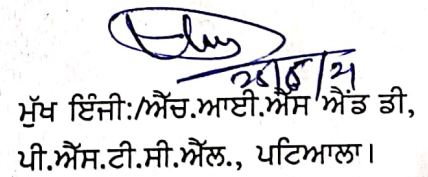 ਮੁੱਖ ਇੰਜੀ:/ਐੱਚ.ਆਈ.ਐੱਸ ਐਂਡ ਡੀ,
ਪੀ.ਐੱਸ.ਟੀ.ਸੀ.ਐੱਲ., ਪਟਿਆਲਾ।